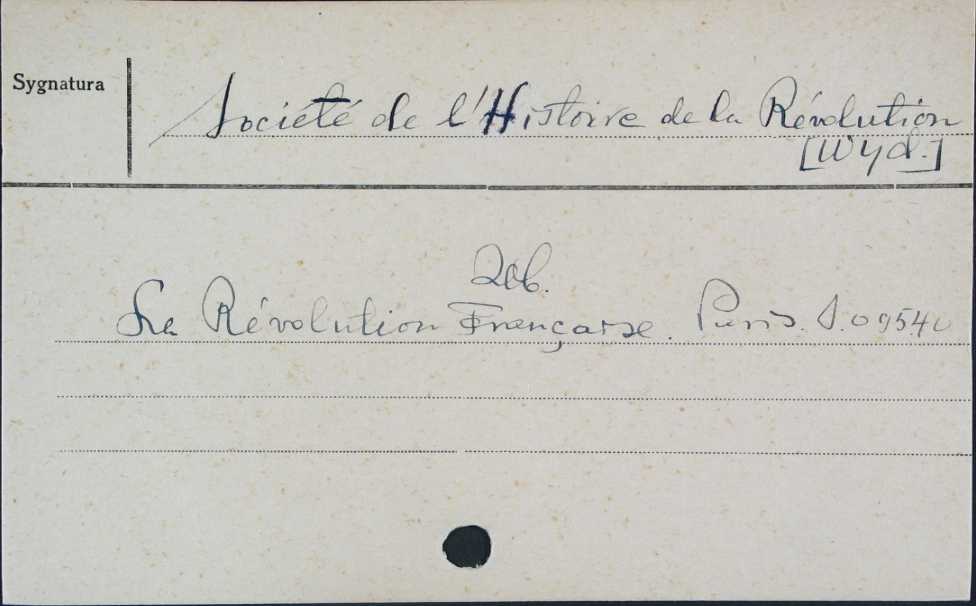 Sygnatura
Société de l'Histoire de la Révolution
[Wyd.]
Zob.
La Révolution Française. Paris. S.09540